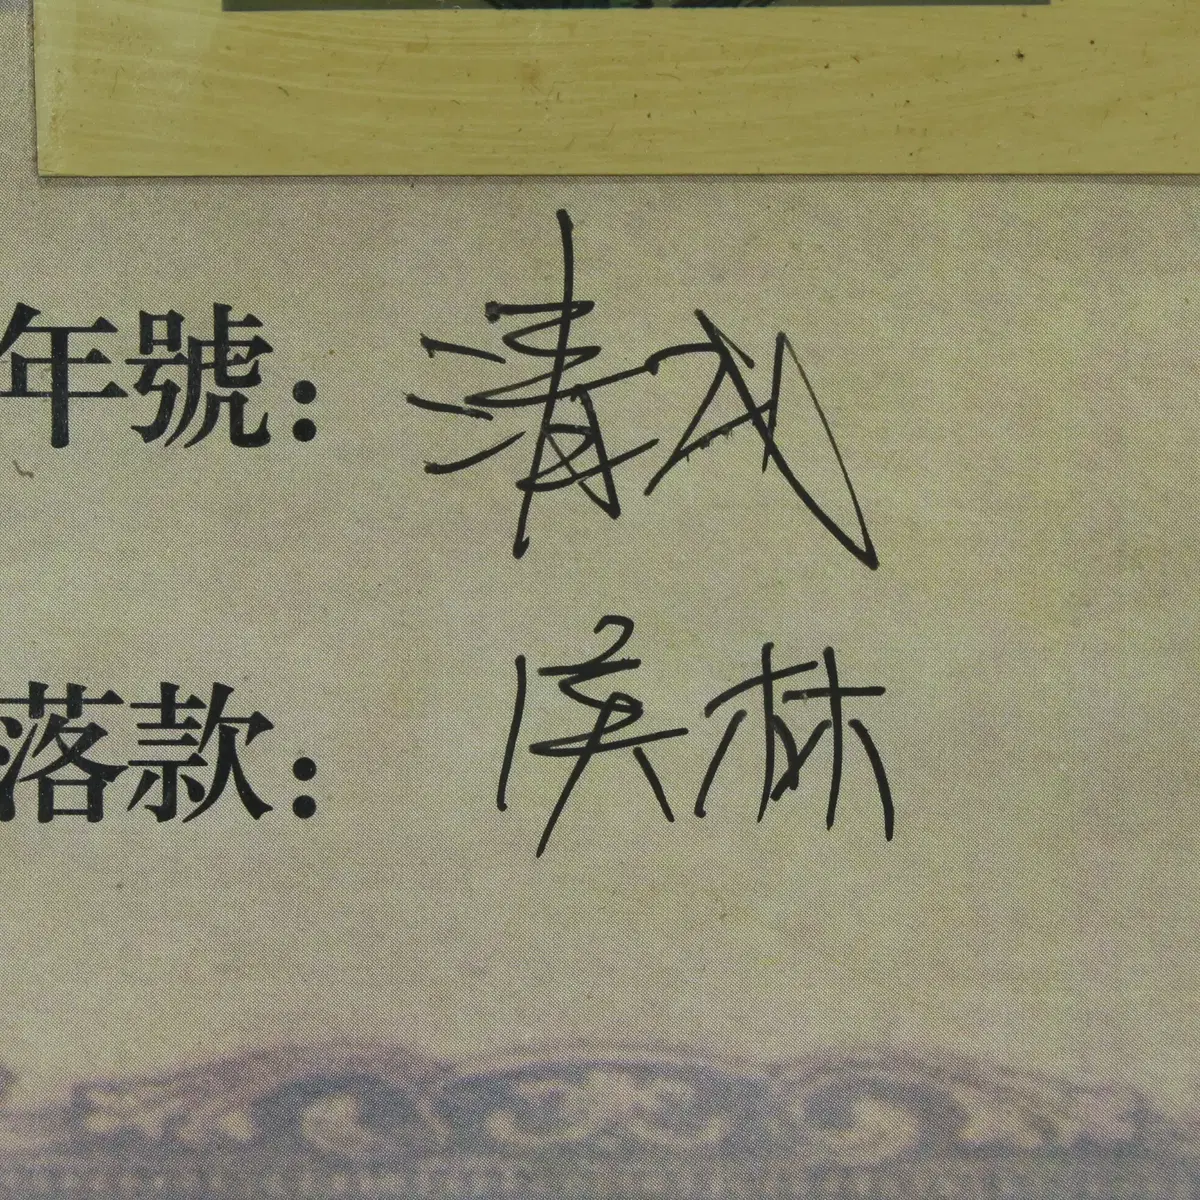 年號：清代
落款：林